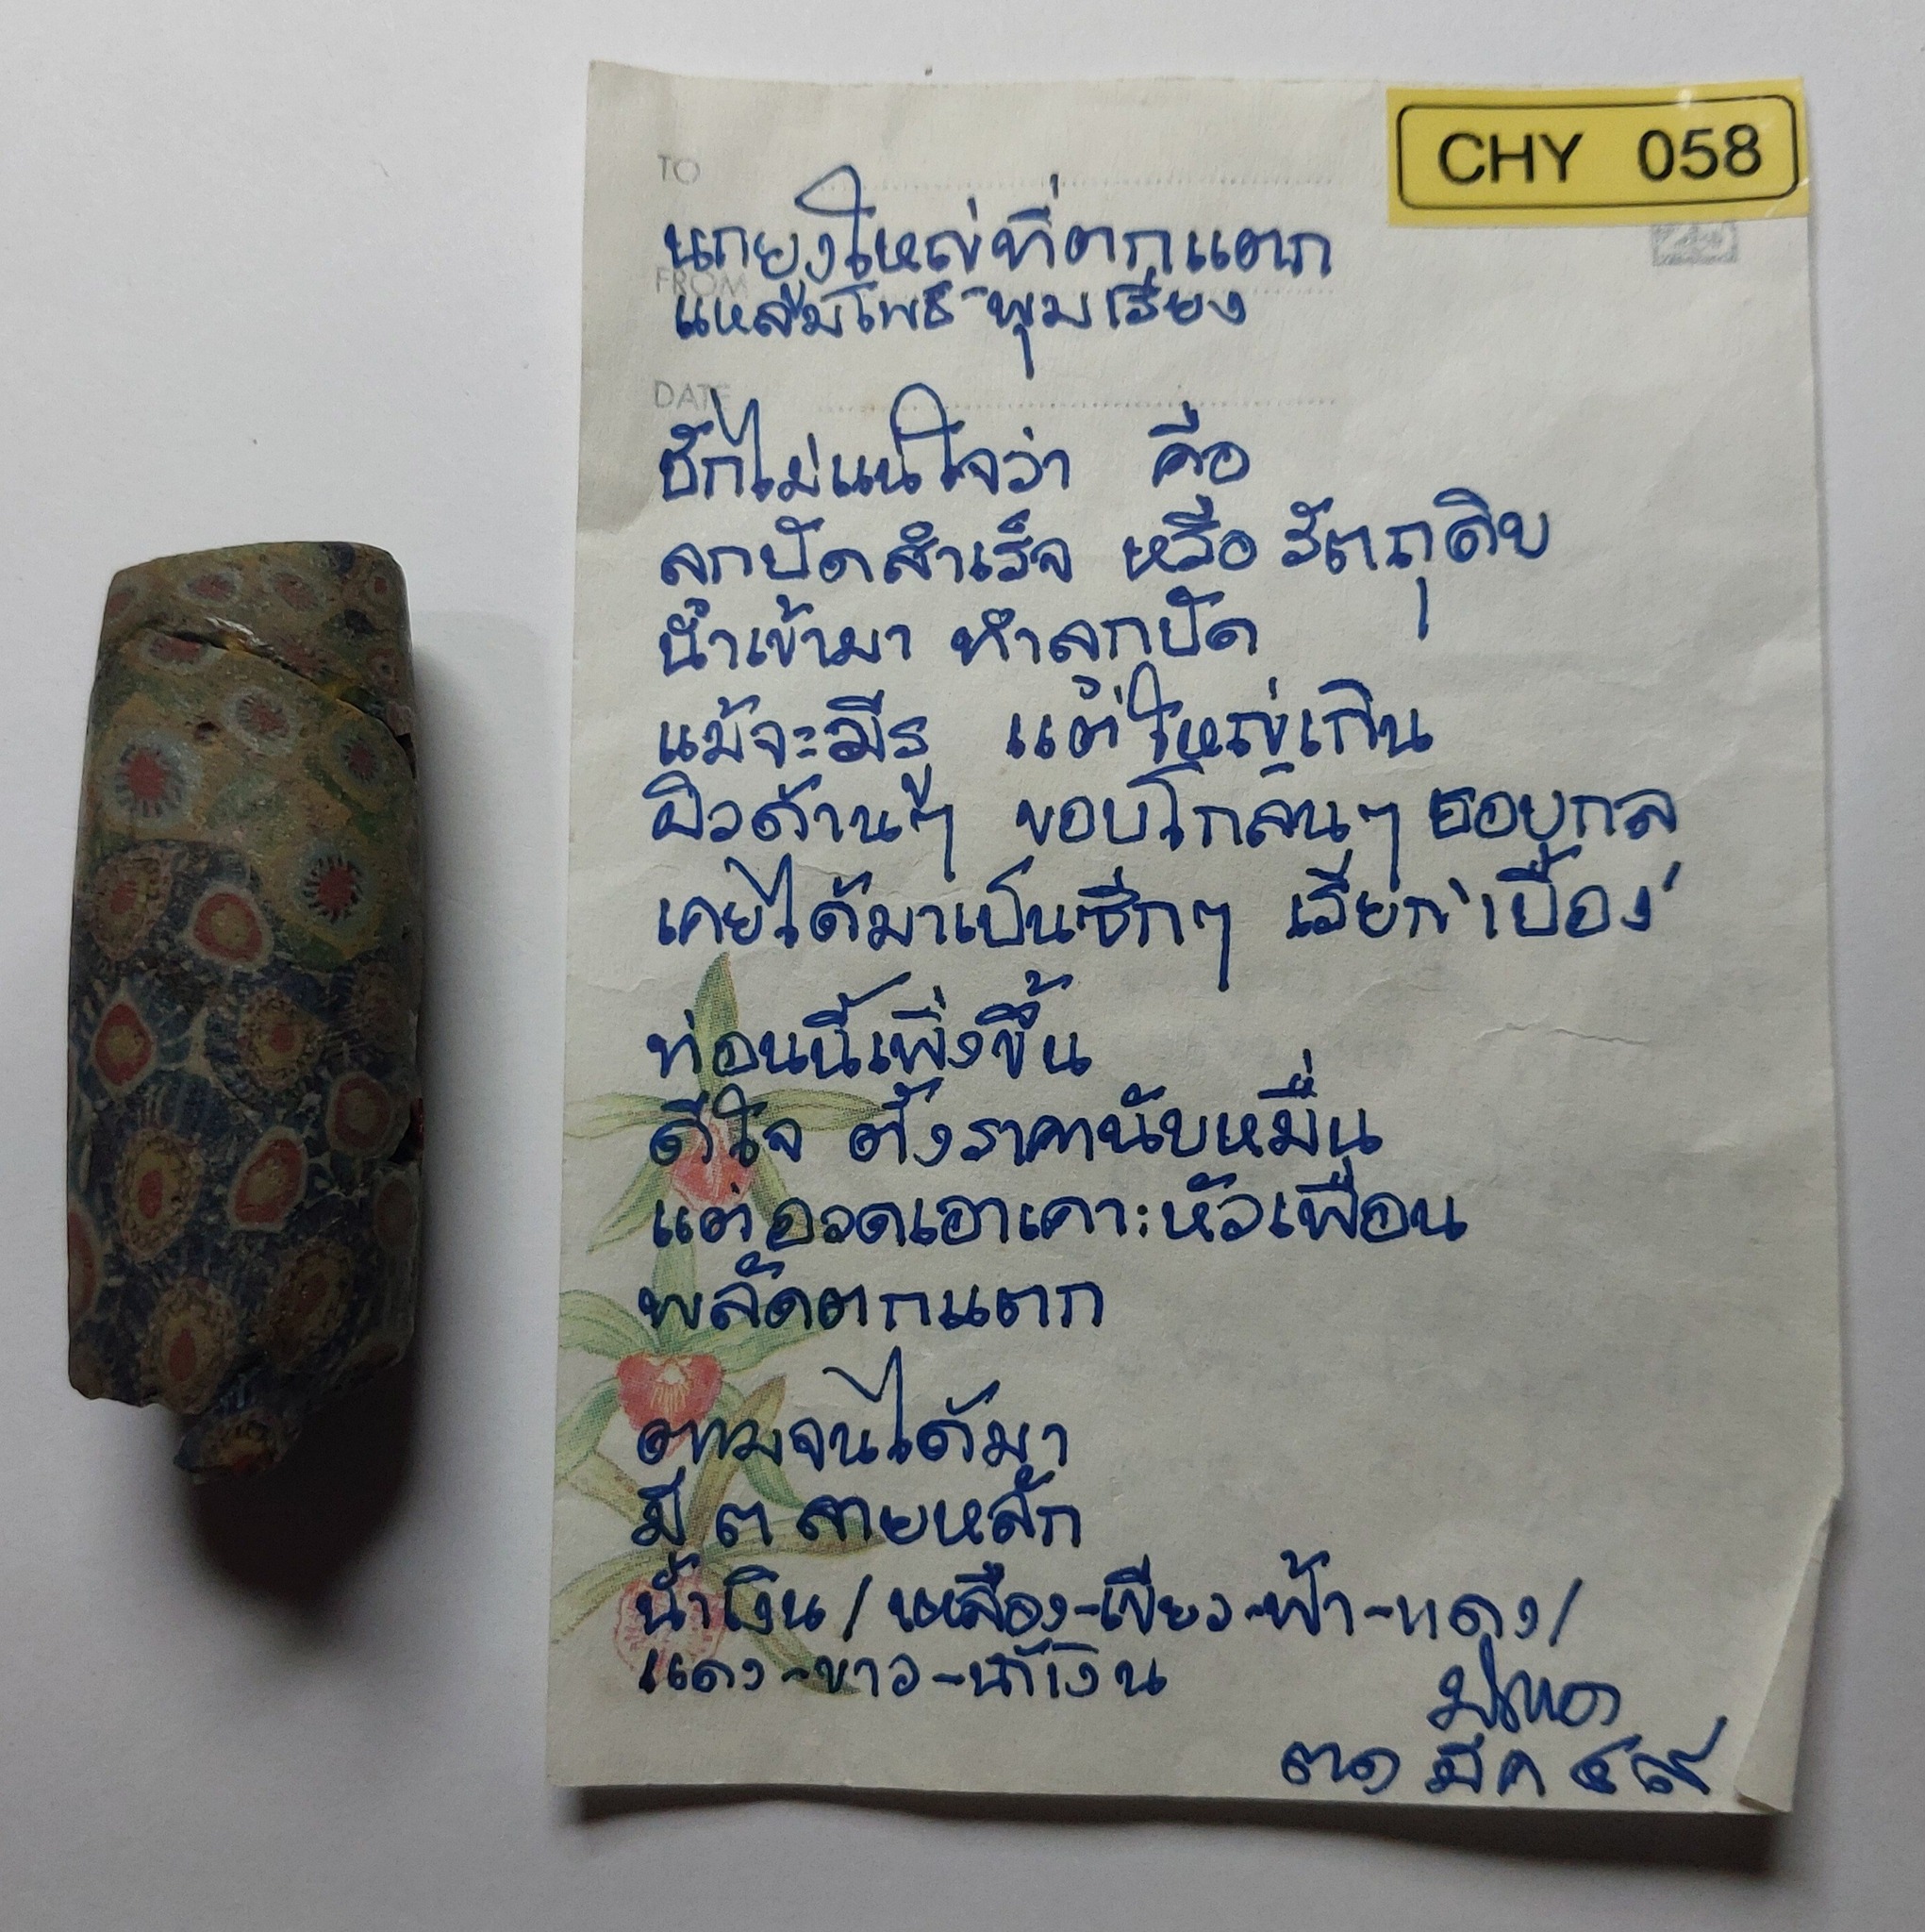 CHY 058
TO
นกยูงใหญ่ที่ตกแตก
FROM
แหลมโพธิ์-พุมเรียง
DATE
ชักไม่แน่ใจว่า คือ
ลูกปัดสำเร็จ หรือ วัตถุดิบ
นำเข้ามา ทำลูกปัด
แม้จะมีรู แต่ใหญ่เกิน
ผิวด้านๆ ขอบโกลนๆ
เคยได้มาเป็นซีกๆ เรียก 'เบื้อง'
ท่อนนี้เพิ่งขึ้น
ดีใจ ตั้งราคานับหมื่น
แต่อวดเอาเคาะหัวเพื่อน
พลัดตกแตก
ตามจนได้มา
มี ๓ ลายหลัก
น้ำเงิน / เหลือง-เขียว-ฟ้า-แดง /
แดง-ขาว-น้ำเงิน
๓๑ มีค ๔๙